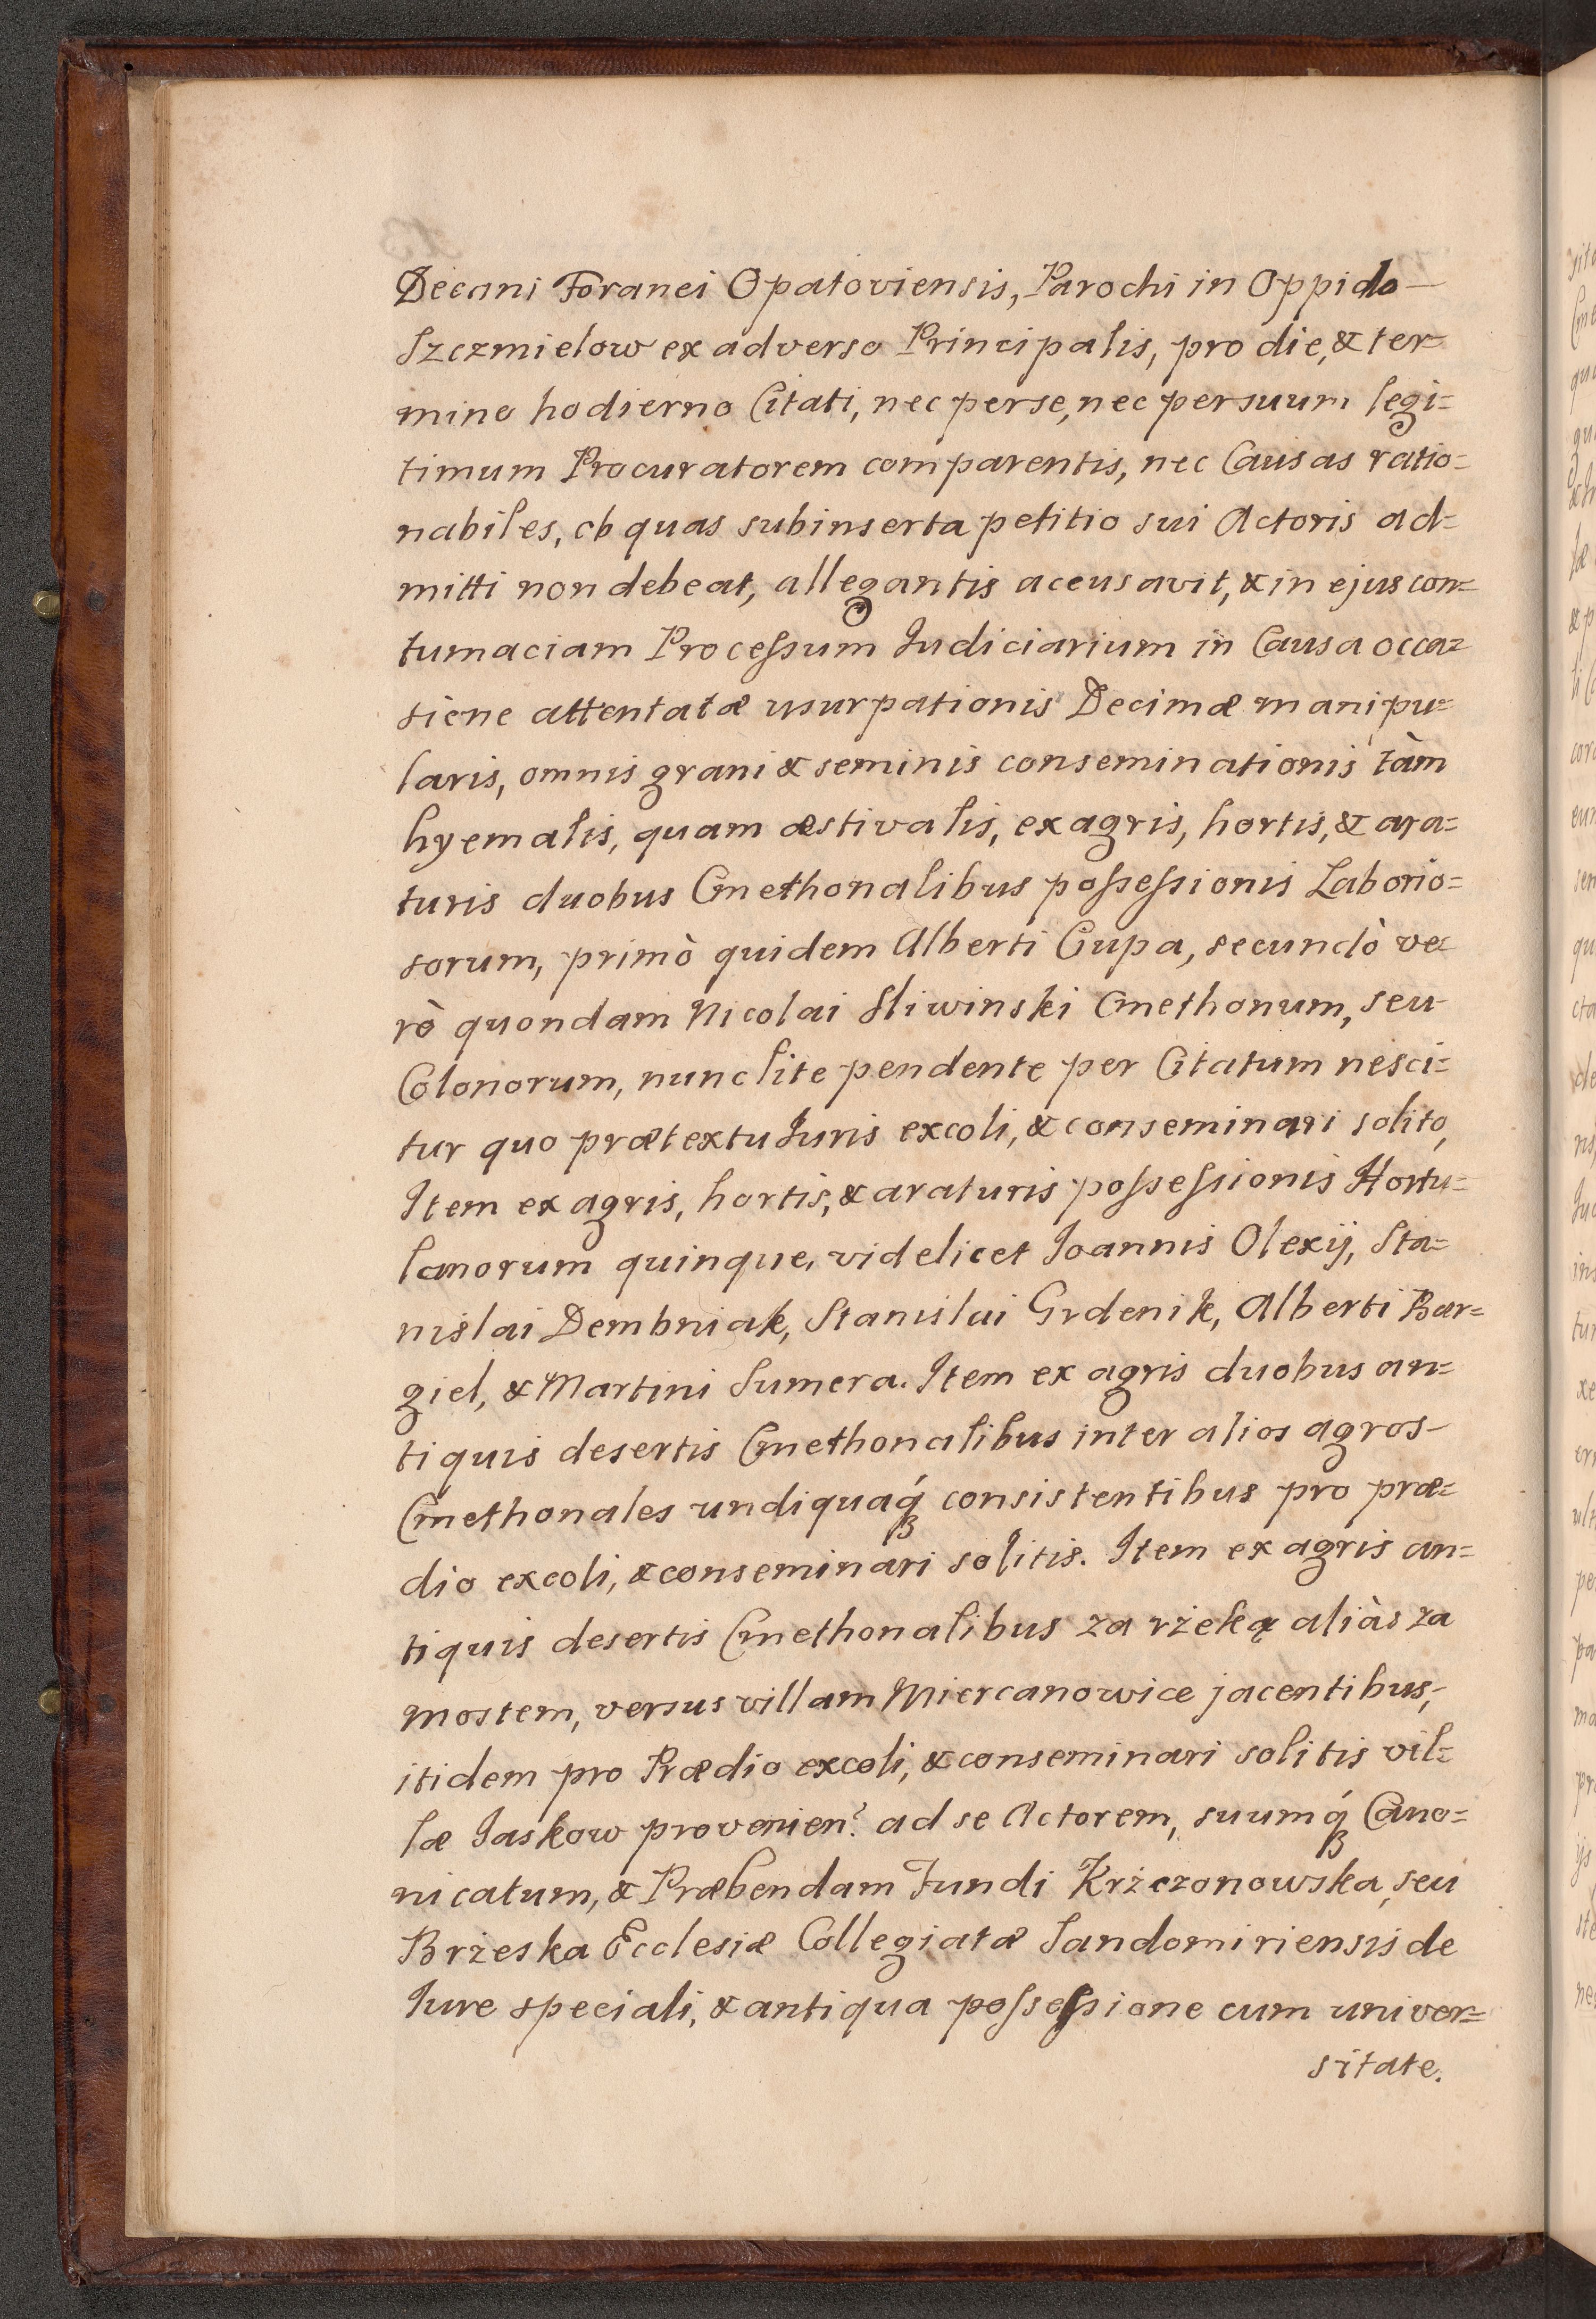 Decani Foranei Opatoviensis, Parochi in Oppido
Szczmielow ex adverso Principalis, pro die, & ter=
mino hodierno Citati, nec per se, nec per suum legi=
timum Procuratorem comparentis, nec Causas ratio=
nabiles, ob quas subinserta petitio sui Actoris ad=
mitti non debeat, allegantis accusavit, & in ejus con=
tumaciam Processum Judiciarium in Causa occa=
sione attentatæ usurpationis Decimæ manipu=
laris, omnis grani & seminis conseminationis tàm
hyemalis, quam æstivalis, ex agris, hortis, & ara=
turis duobus Cmethonalibus possessionis Laborio=
sorum, primò quidem Alberti Cupa, secundò ve=
rò quondam Nicolai Sliwinski Cmethonum, seu
Colonorum, nunc lite pendente per Citatum nesci=
tur quo prætextu Juris excoli, & conseminari solito,
Item ex agris, hortis, & araturis possessionis Hortu=
lanorum quinque, videlicet Joannis Olexij, Sta=
nislai Dembniak, Stanislai Grdenik, Alberti Bar=
giel, & Martini Sumera. Item ex agris duobus an=
tiquis desertis Cmethonalibus inter alios agros
Cmethonales undiquaq́ consistentibus pro præ=
dio excoli, & conseminari solitis. Item ex agris an=
tiquis desertis Cmethonalibus za rżeką aliàs za
mostem, versus villam Miercanowice jacentibus,
itidem pro Prædio excoli, & conseminari solitis vil=
læ Jaskow provenien? ad se Actorem, suumq́ Cano=
nicatum, & Præbendam Fundi Krżczonowska, seu
Brżeska Ecclesiæ Collegiatæ Sandomiriensis de
Jure speciali, & antiqua possessione cum univer=
sitate.